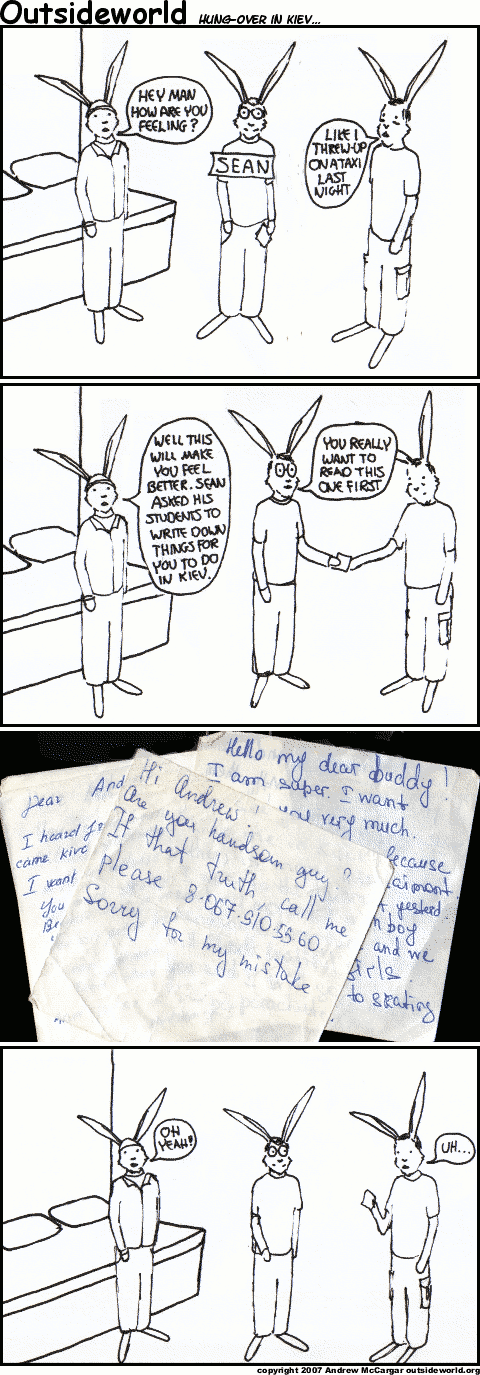 Outsideworld HUNG-OVER IN KIEV...
HEY MAN
HOW ARE YOU
FEELING?
SEAN
LIKE I
THREW-UP
ON A TAXI
LAST
NIGHT
WELL THIS
WILL MAKE
YOU FEEL
BETTER. SEAN
ASKED HIS
STUDENTS TO
WRITE DOWN
THINGS FOR
YOU TO DO
IN KIEV.
YOU REALLY
WANT TO
READ THIS
ONE FIRST
Dear And
I heard
came
I want
You
Hi Andrew.
Are you handsom guy?
If that truth, call me
please 8-067-910-5560
Sorry for my mistake
Hello my dear buddy!
I am super. I want
you very much.
because
yesterd
boy
and we
girls.
to skating
OH
YEAH!
UH...
copyright 2007 Andrew McCargar outsideworld.org